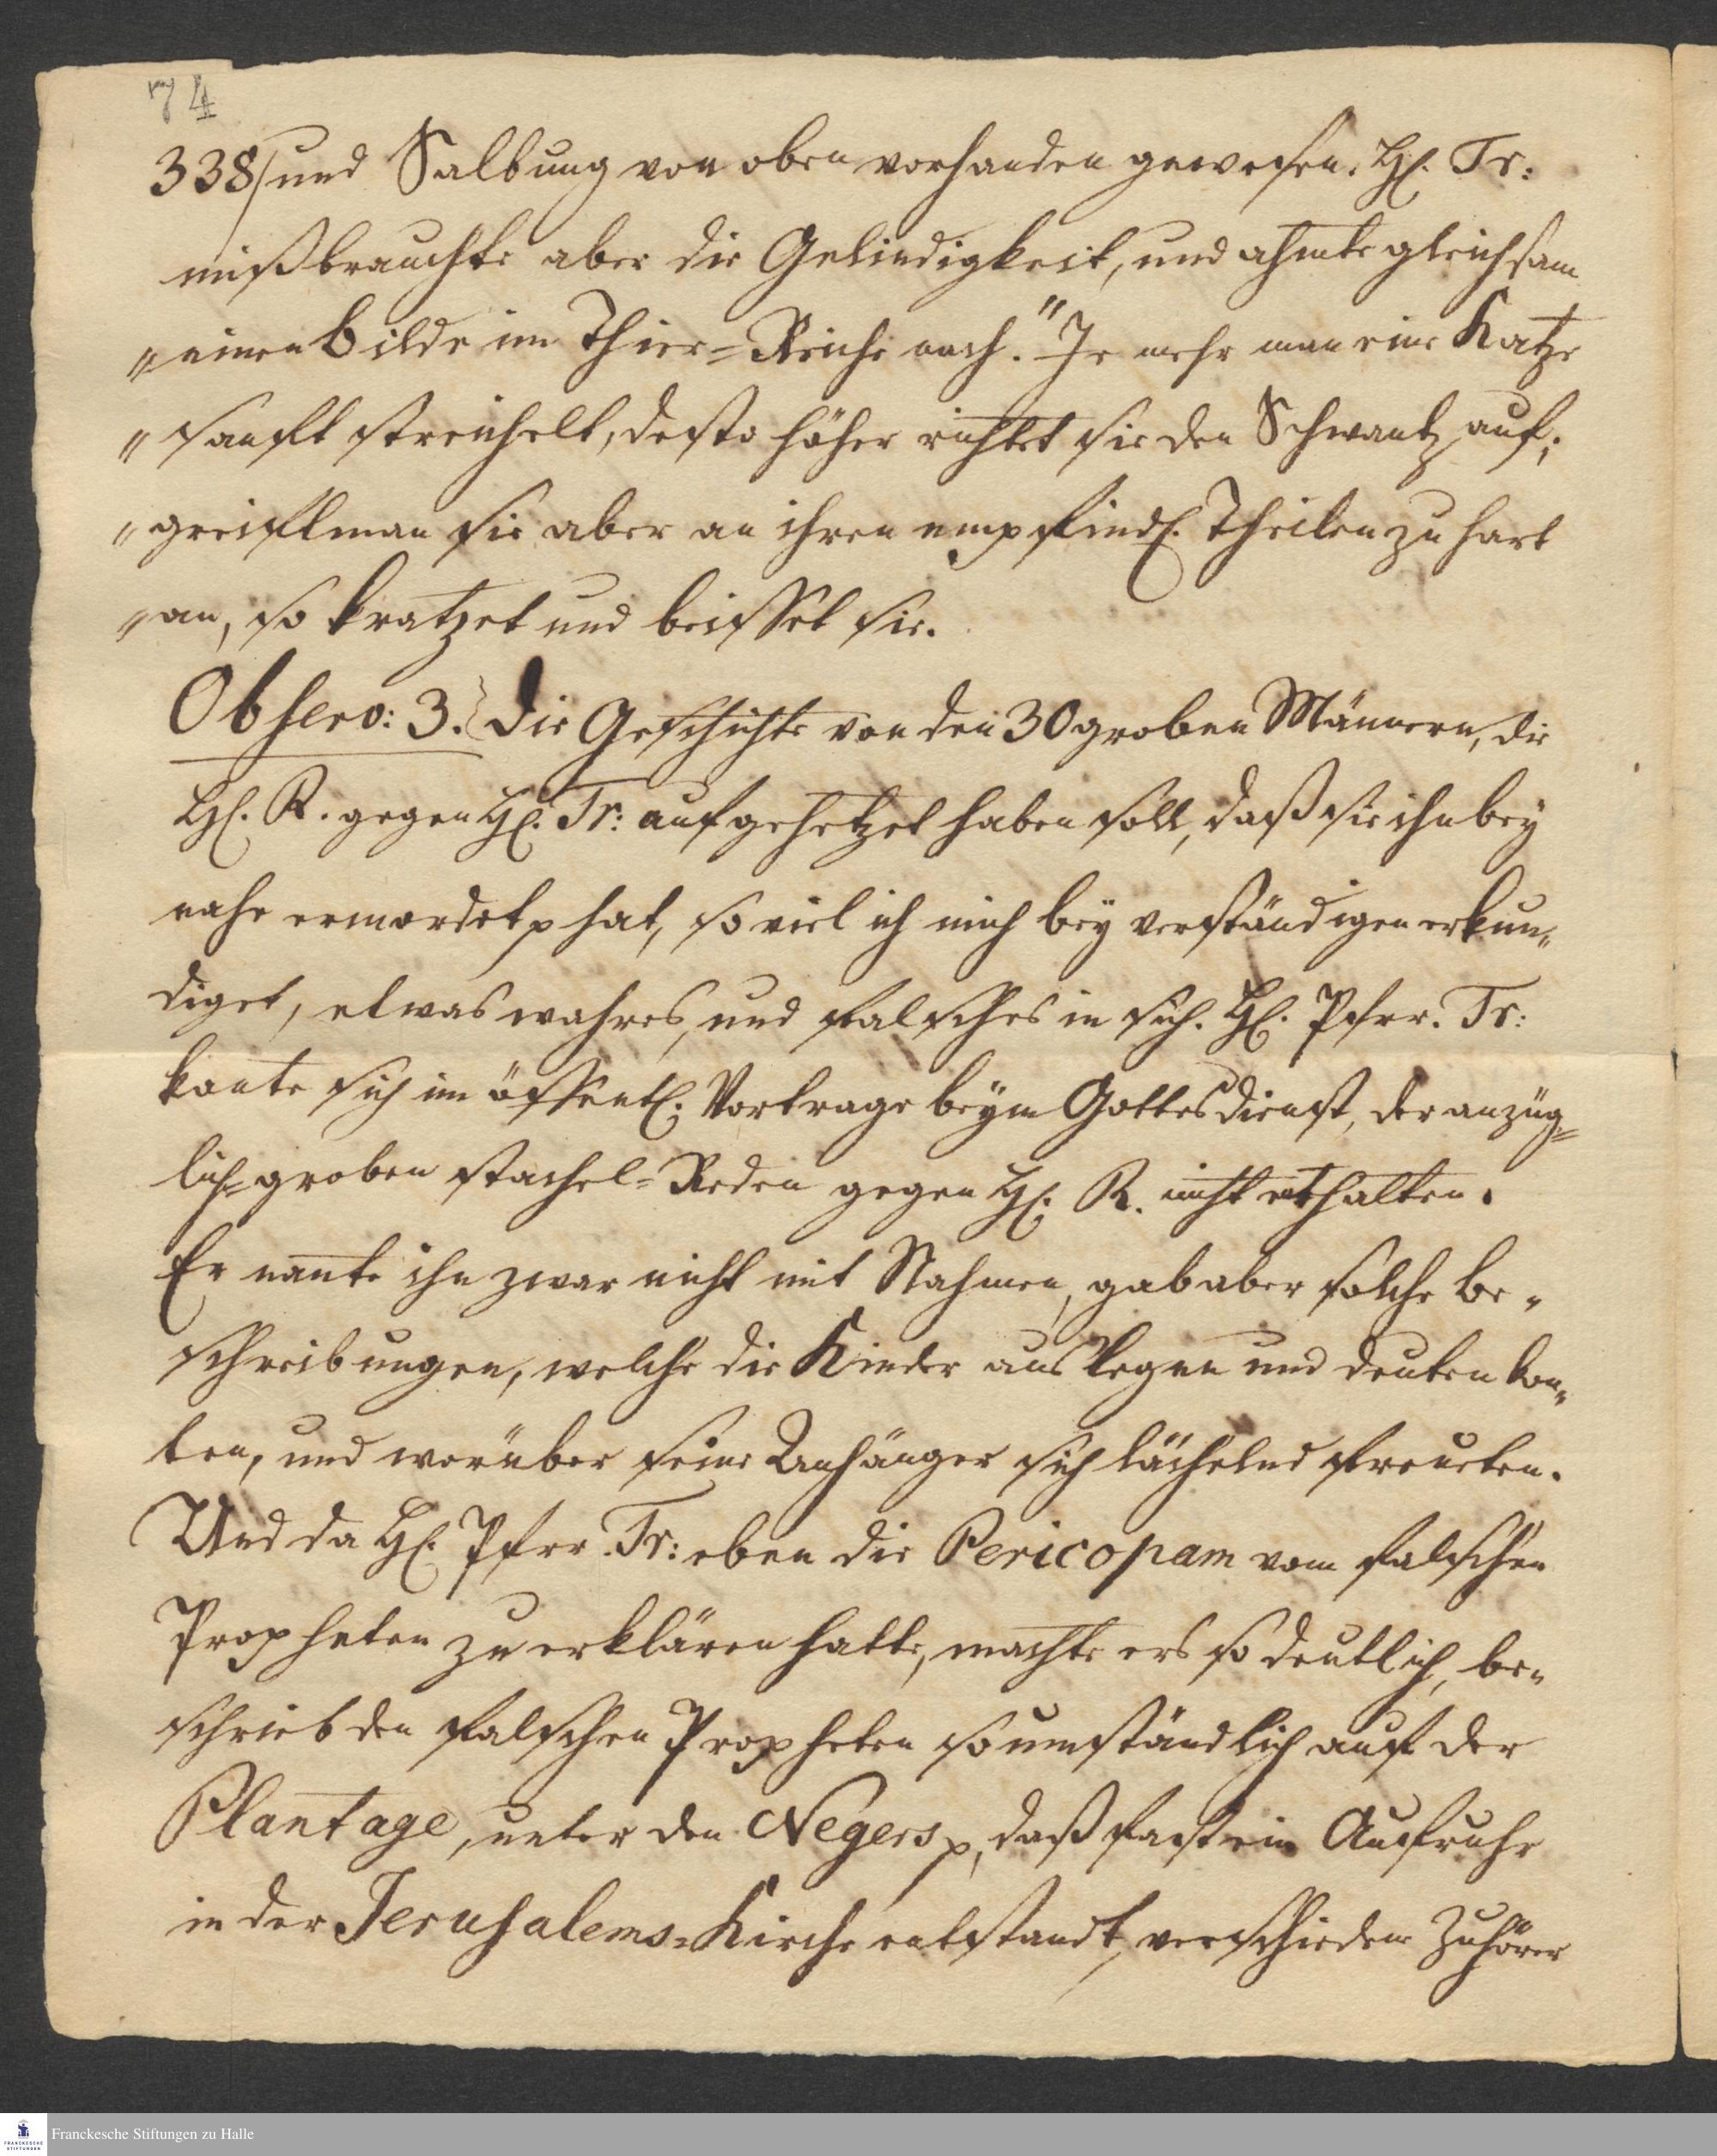 74
338/ und Salbung von oben vorhanden gewesen. H. Tr:
mißbrauchte aber die Gelindigkeit, und ahmte gleichsam
„einen Bilde im Thier=Reiche nach." Je mehr man eine Katze
„sanft streichelt, desto höher richtet sie den Schwantz auf;
„greift man sie aber an ihren empfindl. Theilen zu hart
„an, so kratzet und beisset sie.
Observ: 3. Die Geschichte von den 30 groben Männern, die
H. R. gegen H. Tr: aufgehetzet haben soll, daß sie ihn bey
nahe ermordet p hat, so viel ich mich bey verständigen erkun„
diget, etwas wahres und falsches in sich. H. Pfrr. Tr:
konte sich im öffentl. Vortrage beym Gottesdienst, der anzüg=
lich=groben stachel=Reden gegen H. R. nicht enthalten.
Er nante ihn zwar nicht mit Nahmen, gab aber solche Be„
schreibungen, welche die Kinder auslegen und deuten kon„
ten, und worüber seine Anhänger sich lächelnd freueten.
Und da H. Pfrr. Tr: eben die Pericopam vom falschen
Propheten zu erklären hatte, machte ers so deutlich, be„
schrieb den falschen Propheten so umständlich auf der
Plantage, unter den Negers p, daß fast ein Aufruhr
in der Jerusalems=Kirche entstandt, verschiedene Zuhörer
Franckesche Stiftungen zu Halle
FRANCKESCHE
STIFTUNGEN